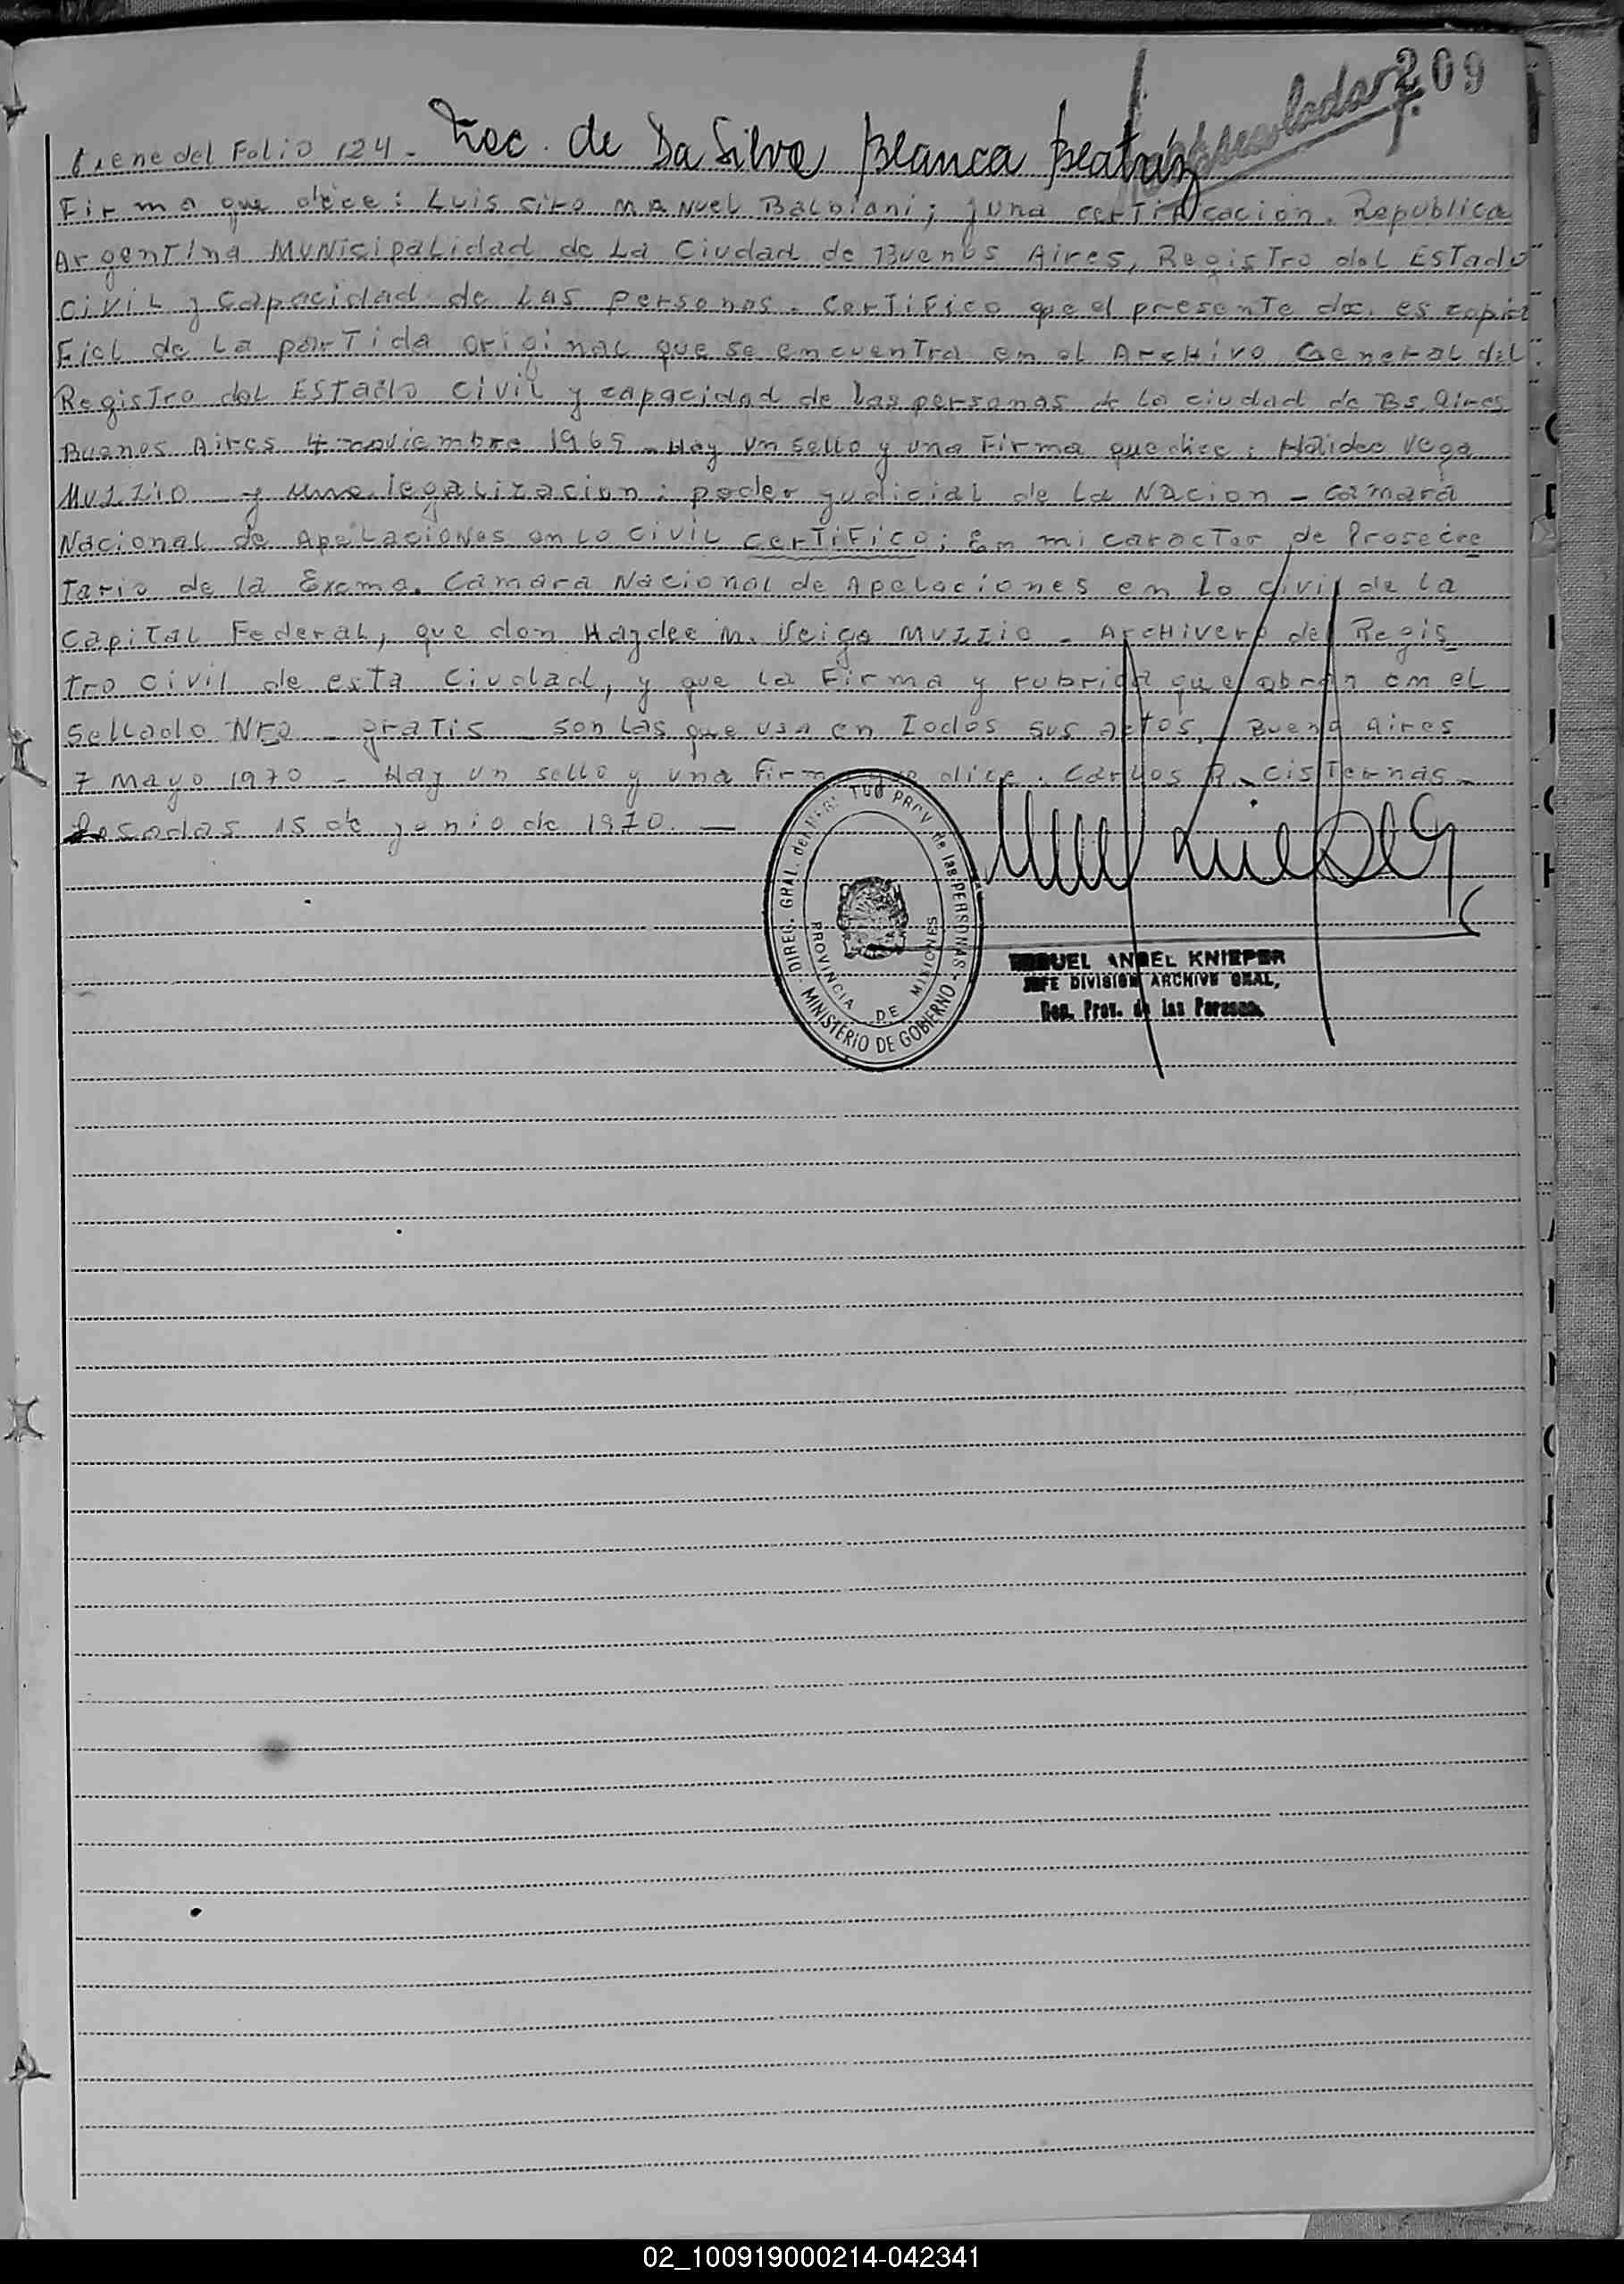 209
Viene del Folio 124 - Loc. de Da Silva Blanca Beatriz
Firma que dice: Luis Ciro Manuel Balbiani; y una certificacion. Republica
Argentina Municipalidad de La Ciudad de Buenos Aires, Registro del Estado
Civil y capacidad de Las personas. Certifico que el presente doc. es copia
Fiel de La partida original que se encuentra en el Archivo General del
Registro del Estado Civil y capacidad de las personas de la ciudad de Bs. Aires
Buenos Aires 4 noviembre 1969 - Hay un sello y una Firma que dice: Haidee Vega
Muzzio - y una legalizacion: poder judicial de La Nacion - Camara
Nacional de Apelaciones en lo Civil certifico: En mi caracter de Prosecre
tario de la Excma. Camara Nacional de Apelaciones en lo civil de la
Capital Federal, que don Haydee M. Veiga Muzzio - Archivero del Regis
tro civil de esta Ciudad, y que la Firma y rubrica que obran en el
Sellado Nro - gratis - son las que usa en Todos sus actos, Buenos Aires
7 mayo 1970 - Hay un sello y una Firma que dice: Carlos R. Cisternas -
Posadas 15 de junio de 1970. -
DIREC. GRAL. del PROV de las PERSONAS
MINISTERIO DE GOBIERNO
PROVINCIA DE MISIONES
MIGUEL ANGEL KNIEPER
JEFE DIVISION ARCHIVO GRAL,
Reg. Prov. de las Personas
02_100919000214-042341